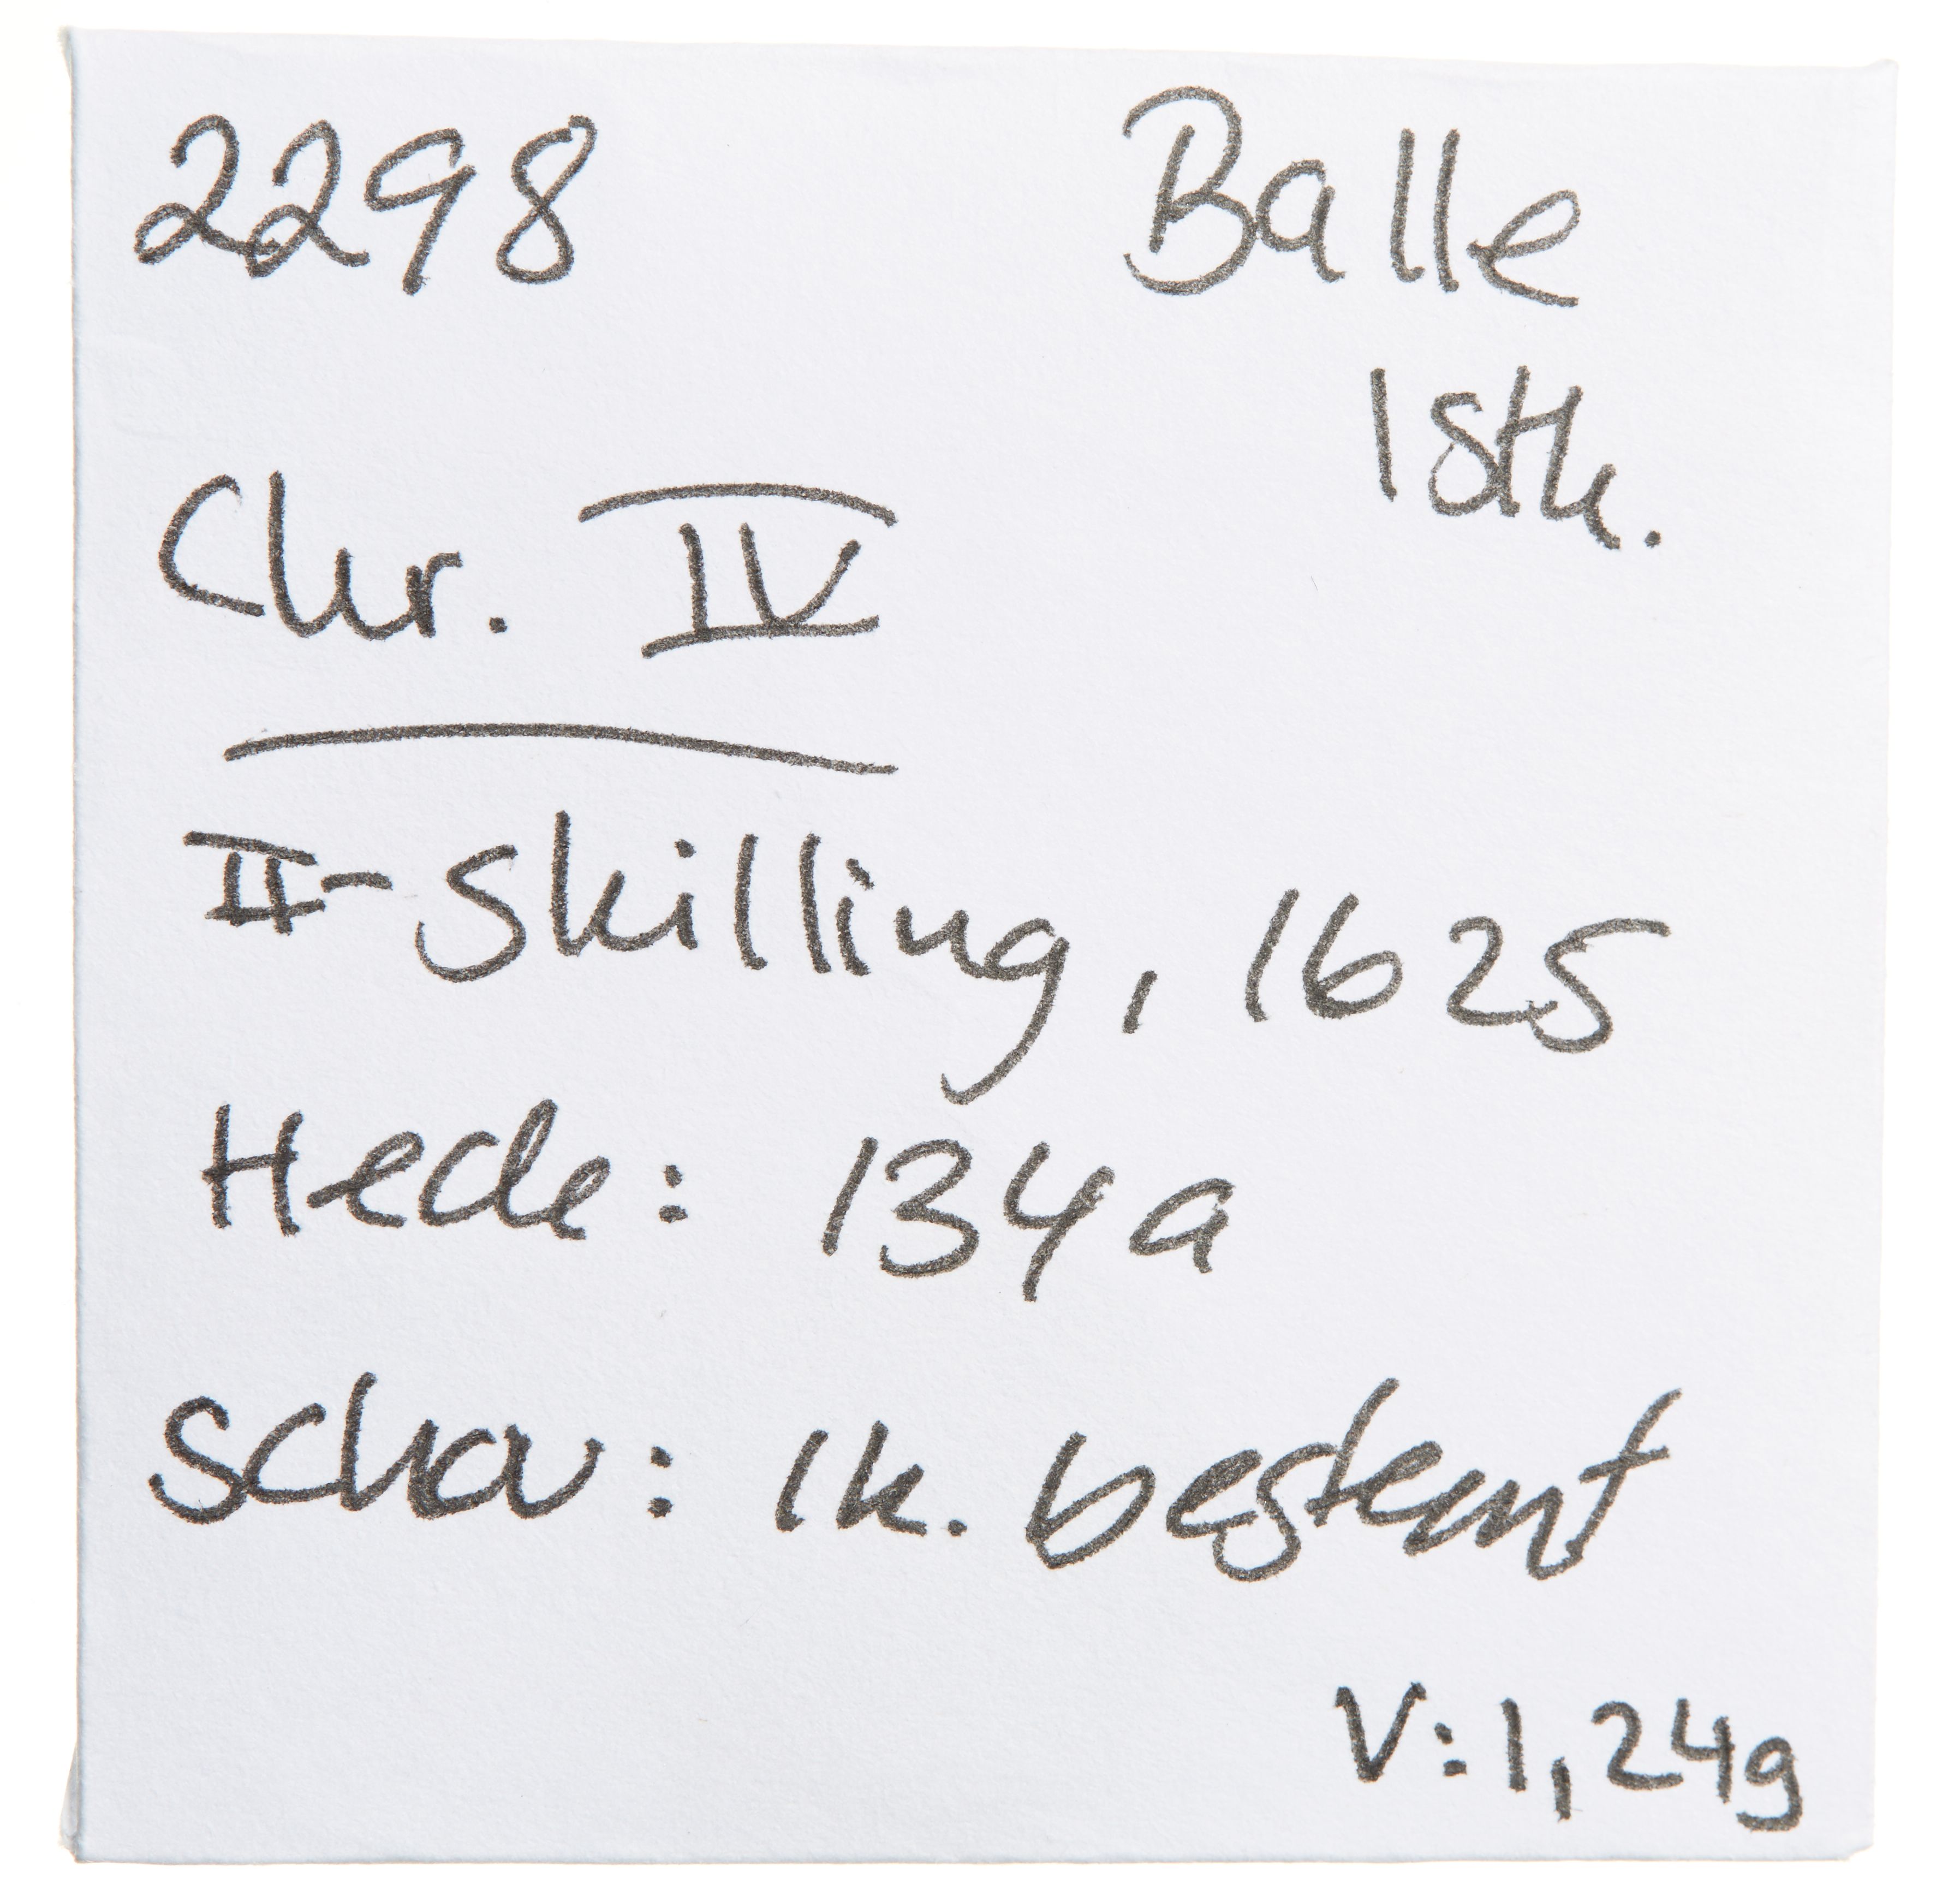 2298
Balle
1 stk.
Chr. IV
II-skilling, 1625
Hede: 134a
Schou: Ik. bestemt
V: 1,24g